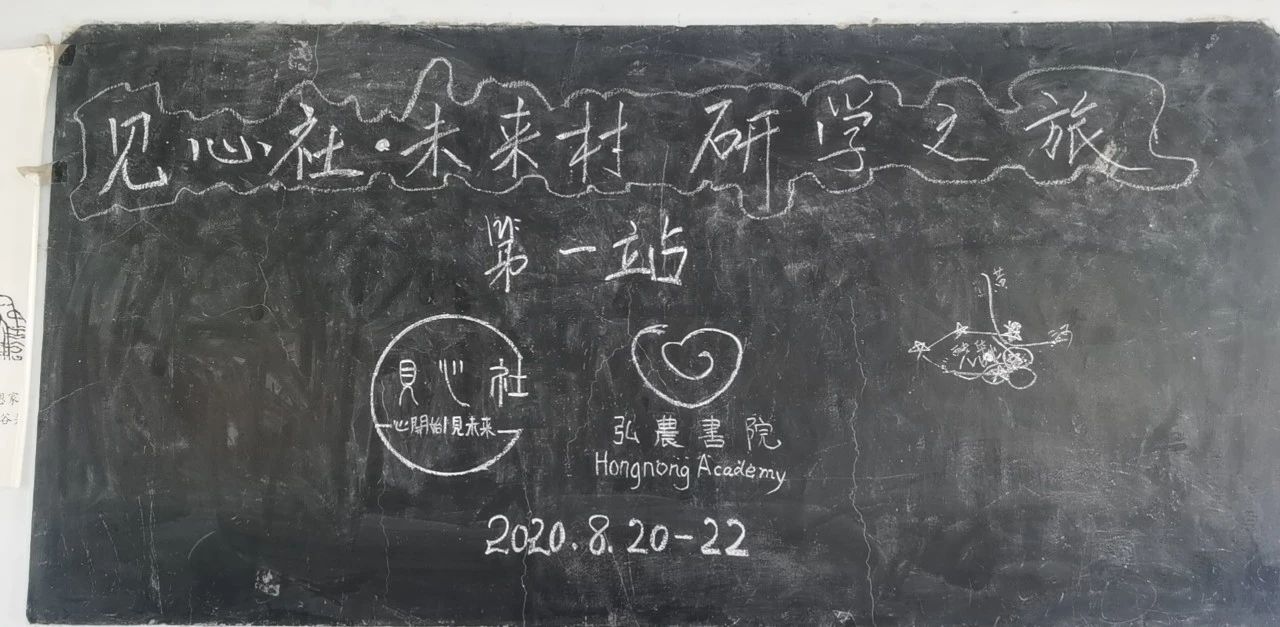 见心社·未来村 研学之旅
第一站
見心社
心開始見未来
弘農書院
Hongnong Academy
2020.8.20-22